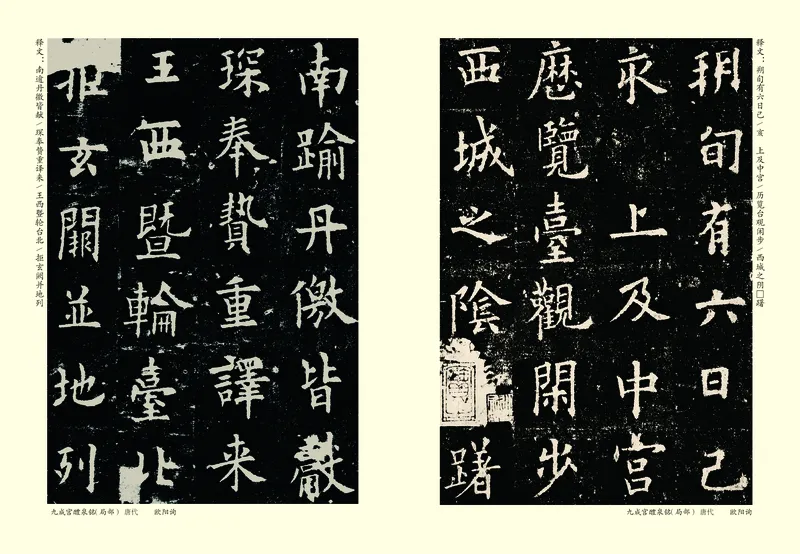 释文：朔旬有六日己/亥　上及中宫/历览台观闲步/西城之阴□躇
朔旬有六日己
亥上及中宮
歷覽臺觀閑步
西城之陰躇
九成宫醴泉铭(局部) 唐代 欧阳询
南踰丹徼皆獻
琛奉贄重譯来
王西暨輪臺北
拒玄闕並地列
释文：南逾丹徼皆献/琛奉贽重译来/王西暨轮台北/拒玄阙并地列
九成宫醴泉铭(局部) 唐代 欧阳询